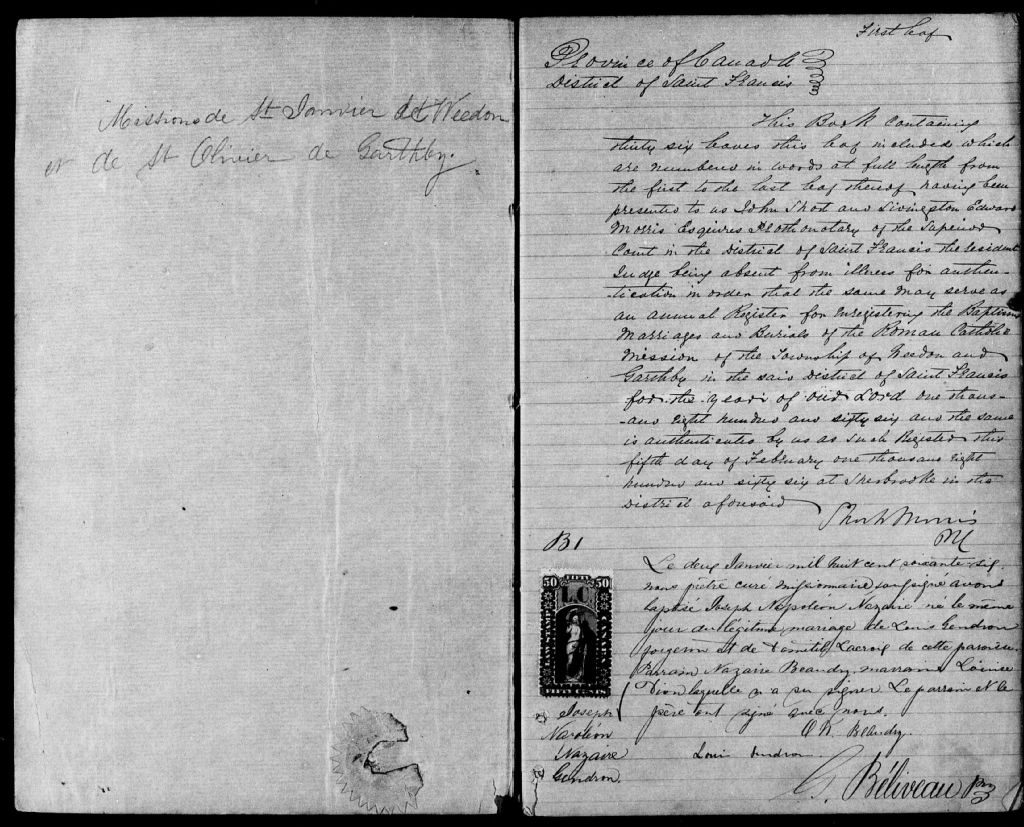 Missions de St Janvier de Weedon
et de St Olivier de Garthby.
First leaf
Province of Canada
District of Saint Francis
This Book Containing
thirty six leaves this leaf included which
are numbered in words at full length from
the first to the last leaf thereof having been
presented to us John Short and Livingston Edward
Morris Esquires Prothonotary of the Superior
Court in the District of Saint Francis the resident
Judge being absent from illness for authen-
-tication in order that the same may serve as
an annual Register for Enregistering the Baptisms
Marriages and Burials of the Roman Catholic
Mission of the Township of Weedon and
Garthby in the said District of Saint Francis
for the year of our Lord one thous-
-and eight hundred and sixty six and the same
is authenticated by us as such Register this
fifth day of February one thousand eight
hundred and sixty six at Sherbrooke in the
District aforesaid
Short & Morris
B1
Le deux Janvier mil huit cent soixante-six
nous prêtre curé missionnaire soussigné avons
baptisé Joseph Napoléon Nazaire né le même
jour du légitime mariage de Louis Gendron
forgeron et de Domitil Lacroix de cette paroisse
Parrain Nazaire Beaudry marraine
Dion laquelle n'a su signer Le parrain et le
père ont signé avec nous.
FIFTY
50 50
L.C.
LAW STAMP
CANADA
FIFTY CENTS
Joseph
Napoléon
Nazaire
Gendron
Beaudry.
Loui
G. Béliveau Ptre